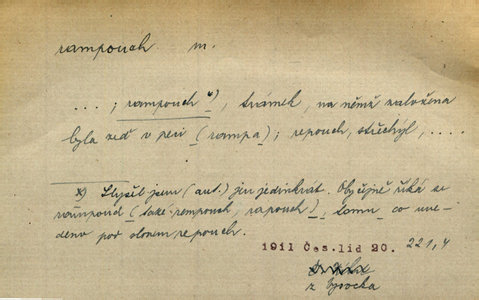 rampouch m.
....; rampouch x), trámek, na němž založena
byla zeď v peci (rampa); repouch, střechýl, .....
x) Slyšel jsem (aut.) jen jedinkrát. Obyčejně říká se
rampouch (také rempouch, rapouch), tomu, co uve-
deno pod slovem repouch.
1911 Čes. lid 20. 221,4
z